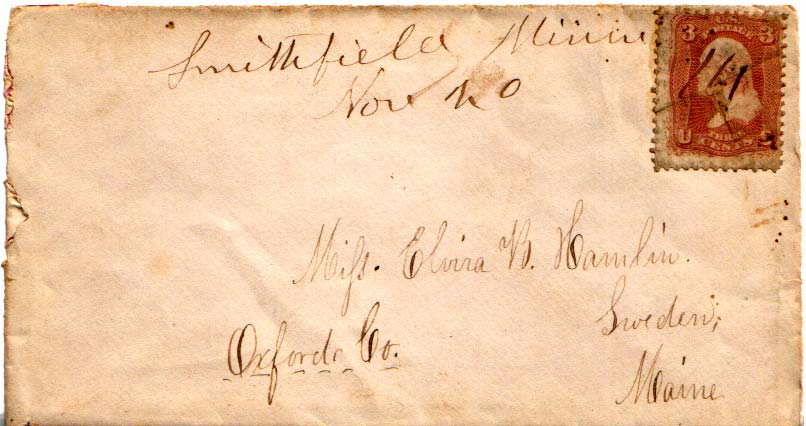 Smithfield Minn
Nov 20
3 U.S. POSTAGE 3
U THREE CENTS S
Miss. Elvira B. Hamlin.
Sweden,
Oxford Co.
Maine